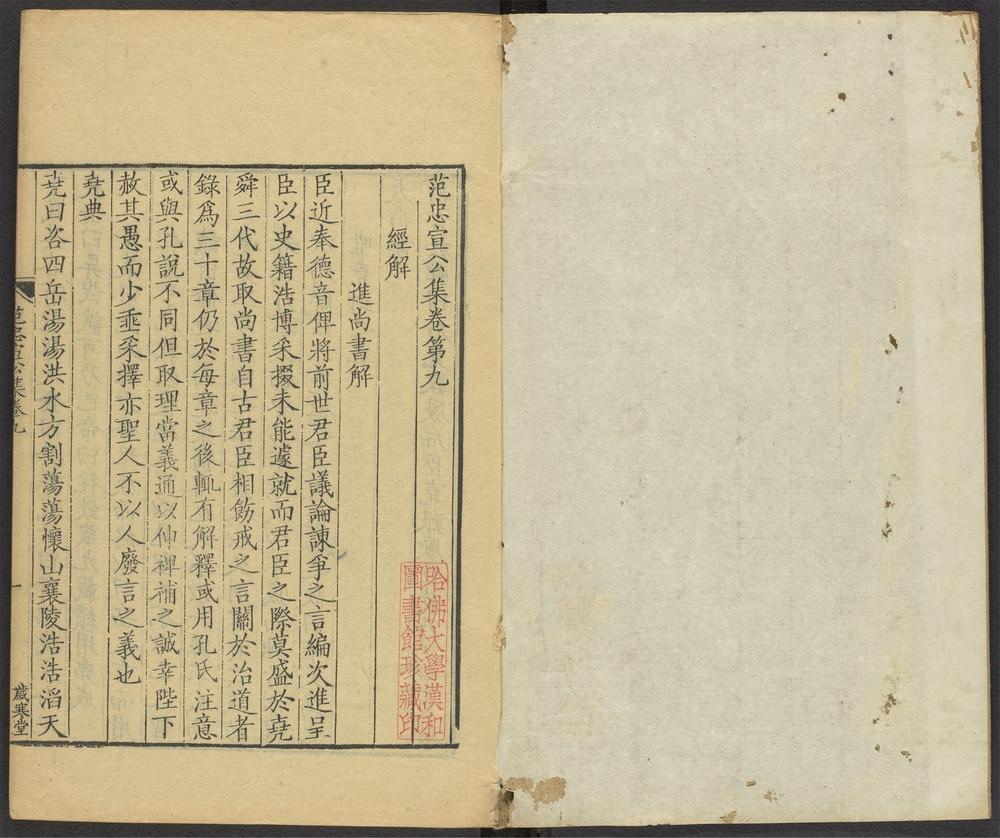 范忠宣公集卷第九
經解
進尚書解
臣近奉德音俾將前世君臣議論諫爭之言編次進呈
臣以史籍浩博采掇未能遽就而君臣之際莫盛於堯
舜三代故取尚書自古君臣相飭戒之言關於治道者
錄爲三十章仍於每章之後輒有解釋或用孔氏注意
或與孔說不同但取理當義通以伸裨補之誠幸陛下
赦其愚而少垂采擇亦聖人不以人廢言之義也
堯典
堯曰咨四岳湯湯洪水方割蕩蕩懷山襄陵浩浩滔天
范忠宣公集卷九
一
歲寒堂
哈佛大學漢和
圖書館珍藏印